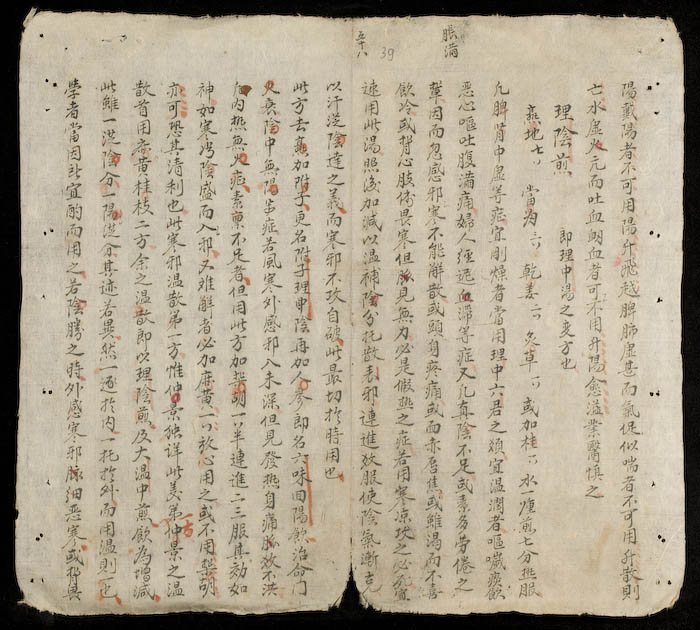 脹滿
五十八
39
陽戴陽者不可用陽升飛越脾肺虛甚而氣促似喘者不可用升散則
亡水虛火亢而吐血衄血者可不用升陽愈溢業醫慎之
理陰煎 即理中湯之变方也
熟地七 當為三 乾姜二 炙草一 或加桂 水一煎七分熱服
凡脾胃中虛等症宜剛燥者當用理中六君之須宜溫潤者嘔噦痰飲
惡心嘔吐腹滿痛婦人經遲血滯等症又凡真陰不足或素多勞倦之
輩因而忽感邪寒不能解散或頭身疼痛或面赤唇焦或雖渴而不喜
飲冷或背心肢俻畏寒但脉見無力必是假热之症若用寒凉攻之必死宜
速用此湯照後加減以温補陰分托散表邪連進数服使陰氣漸充
以汗従陰達之義而寒邪不攻自破此最切扵時用也
此方去加附子更名附子理陰再加人參即名六味囬陽飲治命門
火衰陰中無陽等症若風寒外感邪入未深但見發热身痛脉数不洪
凢內热無火症素禀不足者但用此方加柴胡一半連進二三服其効如
神如寒湾陰盛而入邪又难觧者必加麻黃一放心用之或不用柴胡
亦可恐其清利也此寒邪温散第一方惟仲景独詳此美弟仲景之温
散首用麻黃桂枝二方余之温散即以理陰煎及大温中煎飲為增減
此雖一従陰分一陽従分其迹若異然一逐扵內一托扵外而用溫則一也
學者當因所宜酌而用之若陰勝之時外感寒邪脉细惡寒或背畏